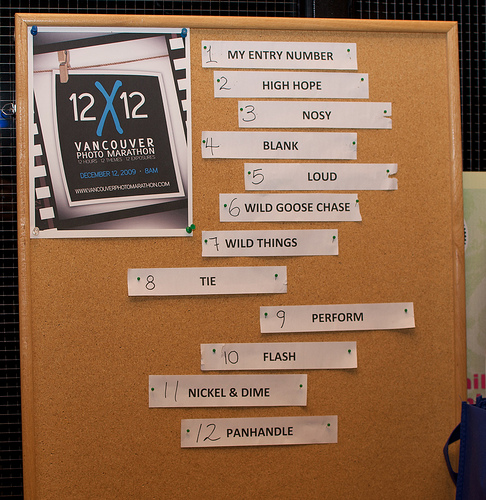 12X12
VANCOUVER
PHOTO MARATHON
12 HOURS 12 THEMES 12 EXPOSURES
DECEMBER 12, 2009 · 8AM
WWW.VANCOUVERPHOTOMARATHON.COM
1 MY ENTRY NUMBER
2 HIGH HOPE
3 NOSY
4 BLANK
5 LOUD
6 WILD GOOSE CHASE
7 WILD THINGS
8 TIE
9 PERFORM
10 FLASH
11 NICKEL & DIME
12 PANHANDLE